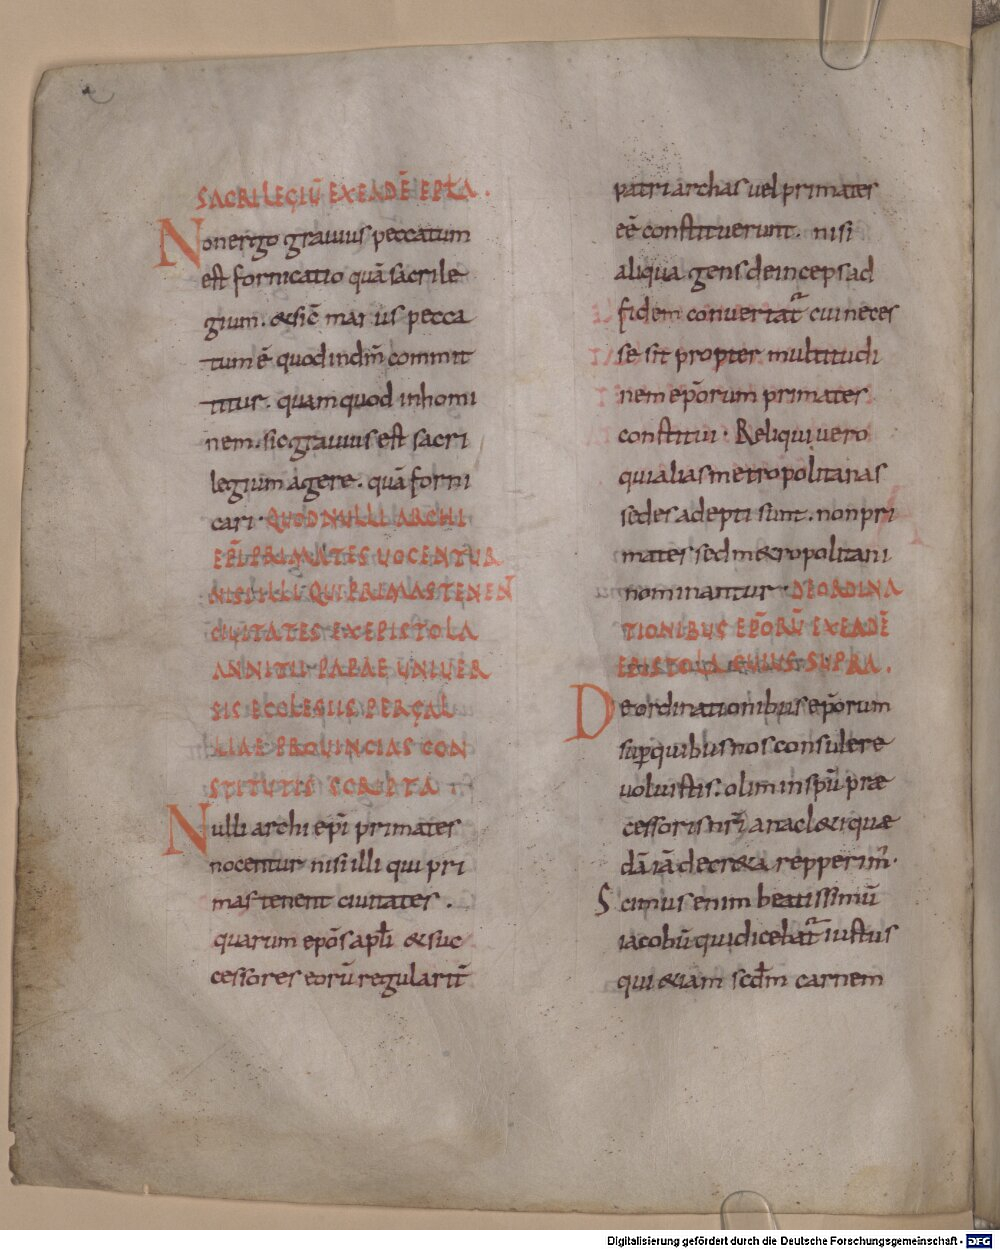 SACRILEGIŪ EXEADĒ EPŁA .
Non ergo grauius peccatum
est fornicatio quā sacrile
gium . & sic̄ mai us pecca
tum ē quod in dm̄ commit
titur . quam quod in homi
nem . sic grauius est sacri
legium agere . quā forni
cari . QUOD NULLI ARCHI
EPĪ PRIMATES UOCENTUR
NISI ILLI QUI PRIMAS TENEN̄
CIUITATES EX EPISTOLA
ANNITII PAPAE UNIUER
SIS ECCLESIIS PER GAL
LIAE PROUINCIAS CON
STITUTIS SCRIPTA
Nulli archi epī primates
nocentur nisi illi qui pri
mas tenent ciuitates .
quarum epōs apłi & suc
cessores eorū regularit̄
patriarchas uel primates
eē constituerunt . nisi
aliqua gens deinceps ad
fidem conuertat̄ cui neces
se sit propter multitudi
nem epōrum primates
constitui . Reliqui uero
qui alias metropolitanas
sedes adepti sunt . non pri
mates sed m&ropolitani
nominantur . DE ORDINA
TIONIBUS EPŌRŪ EX EADĒ
EPISTOLA CUIUS SUPRA .
De ordinationibus epōrum
sup quibus nos consulere
uoluistis . olim in spū præ
cessoris nr̄i anacl&i quæ
dā iā decr&a repperim̄ .
Scimus enim beatissimū
iacobū qui dicebat̄ iustus
qui &iam scđm carnem
Digitalisierung gefördert durch die Deutsche Forschungsgemeinschaft - DFG